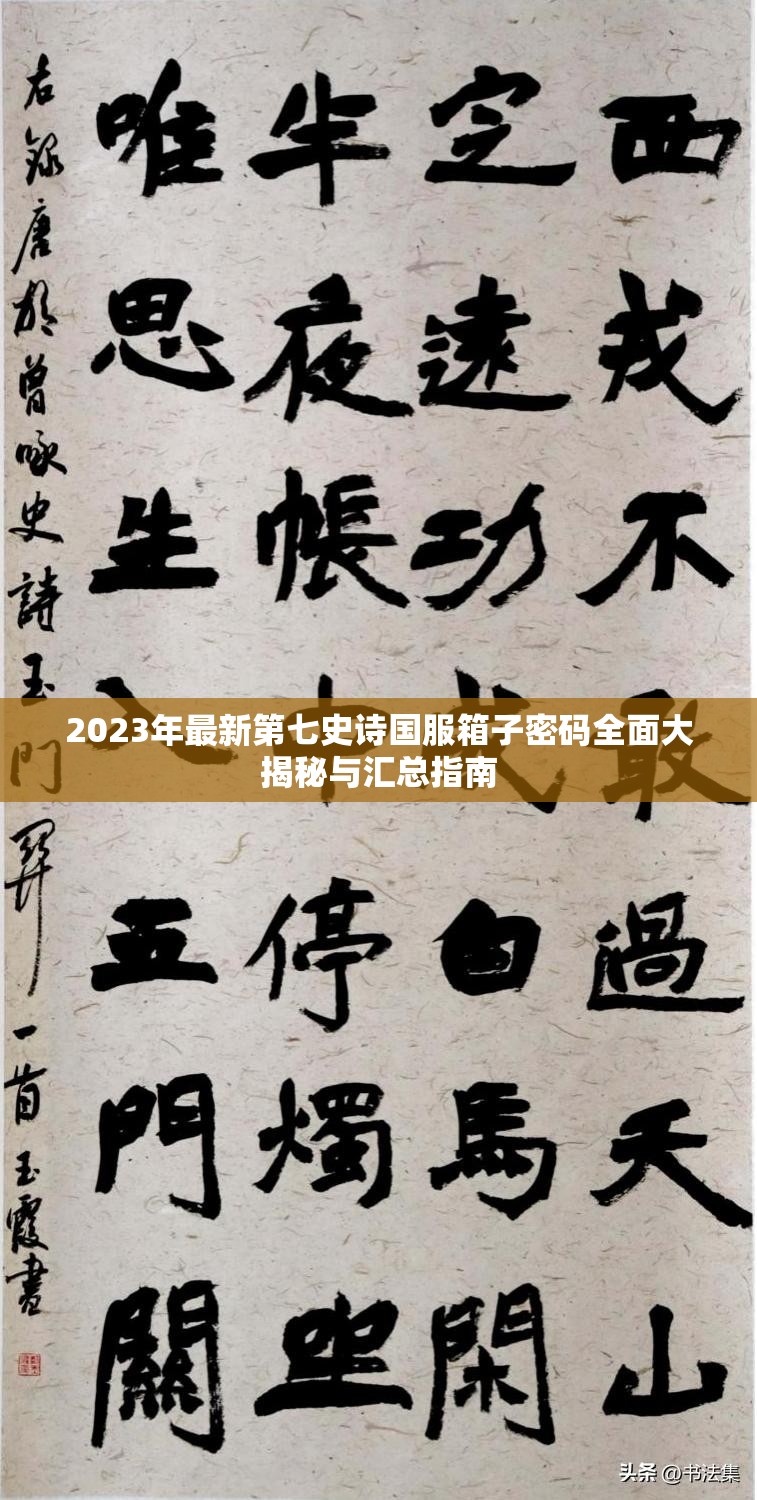 西戎不敢過天山
定遠功成白馬閑
半夜帳中停燭坐
唯思生入玉門關
右錄唐胡曾咏史詩玉門關一首玉霞書
2023年最新第七史诗国服箱子密码全面大
揭秘与汇总指南
头条 @书法集